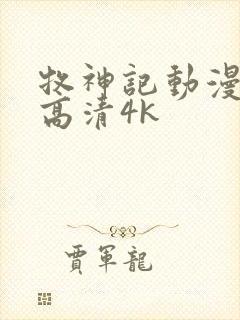 牧神記動漫
高清4K
賈軍龍